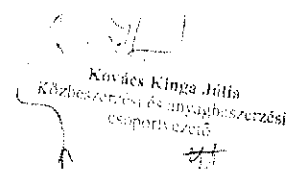 Kovács Kinga Júlia
Közbeszerzési és anyagbeszerzési
csoportvezető